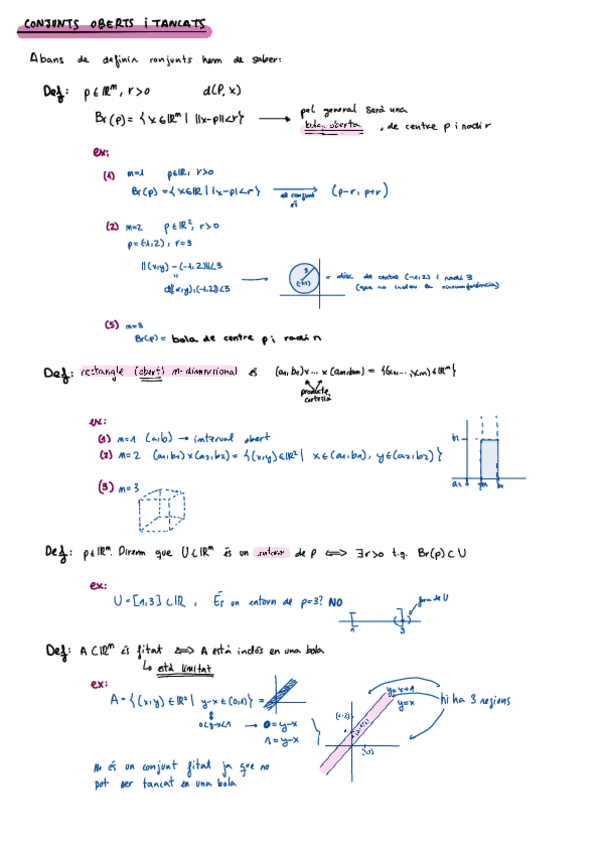 CONJUNTS OBERTS I TANCATS
Abans de definir conjunts hem de saber:
Def: p∈ℝᵐ, r>0 d(p, x)
Br(p) = {x∈ℝᵐ | ||x-p||<r} → pel general serà una
bola oberta, de centre p i radi r
ex:
(1) m=1 p∈ℝ, r>0
Br(p) = {x∈ℝ | |x-p|<r} el conjunt és → (p-r, p+r)
(2) m=2 p∈ℝ², r>0
p=(-1,2), r=3
||(x,y)-(-1,2)||<3
"
d((x,y),(-1,2))<3
3
= disc de centre (-1,2) i radi 3
(que no inclou la circumferència)
(3) m=3
Br(p) = bola de centre p i radi r
Def: rectangle (obert) m-dimensional és (a₁,b₁)x...x(am,bm) = {(x₁,...,xm)∈ℝᵐ}
producte
cartesià
ex:
(1) m=1 (a,b) → interval obert
(2) m=2 (a₁,b₁)x(a₂,b₂) = {(x,y)∈ℝ² | x∈(a₁,b₁), y∈(a₂,b₂)}
(3) m=3
Def: p∈ℝᵐ. Direm que U⊂ℝᵐ és un entorn de p ⟺ ∃r>0 t.q. Br(p)⊂U
ex:
U=[1,3]⊂ℝ, És un entorn de p=3? NO
fora de U
1 3
Def: A⊂ℝᵐ és fitat ⟺ A està inclòs en una bola
↳ està limitat
ex:
A = {(x,y)∈ℝ² | y-x∈(0,1)} =
0<y-x<1 → 0=y-x
1=y-x
y=x+1
y=x
hi ha 3 regions
No és un conjunt fitat ja que no
pot ser tancat en una bola